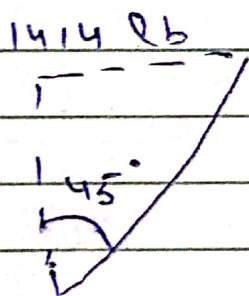 1414 lb
45°